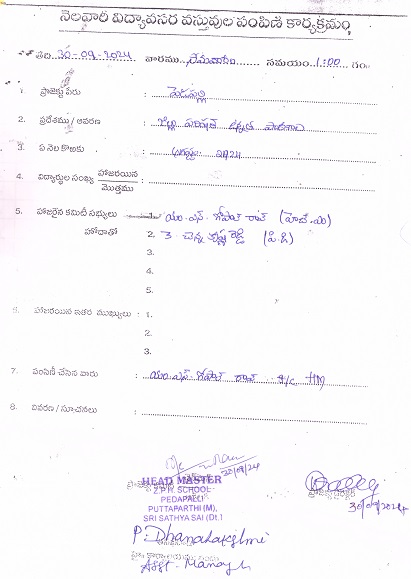 నెలవారి విద్యావసర వస్తువుల పంపిణి కార్యక్రమం
తేది 30-09-2024 వారము సోమవారం సమయం 1:00 గం
1. ప్రాజెక్టు పేరు : పెదపల్లి
2. ప్రదేశము / ఆవరణ : జిల్లా పరిషత్ ఉన్నత పాఠశాల
3. ఏ నెల కొఱకు : ఆగష్టు 2024
4. విద్యార్థుల సంఖ్య హాజరయిన :
మొత్తము
5. హాజరైన కమిటీ సభ్యులు 1. యం.ఎస్. గోపాల్ రావ్ (హెచ్.యం)
హోదాతో 2. చెన్న కృష్ణ రెడ్డి (పి.డి)
3.
4.
5.
6. హాజరయిన ఇతర ముఖ్యులు : 1.
2.
3.
7. పంపిణీ చేసిన వారు : యం.ఎస్. గోపాల్ రావ్ HM
8. వివరణ / సూచనలు :
30/09/24
HEAD MASTER
Z.P.H. SCHOOL
PEDAPALLI
PUTTAPARTHI (M),
SRI SATHYA SAI (Dt.)
30/09/2024
P. Dhanalakshmi
Asst. Manager